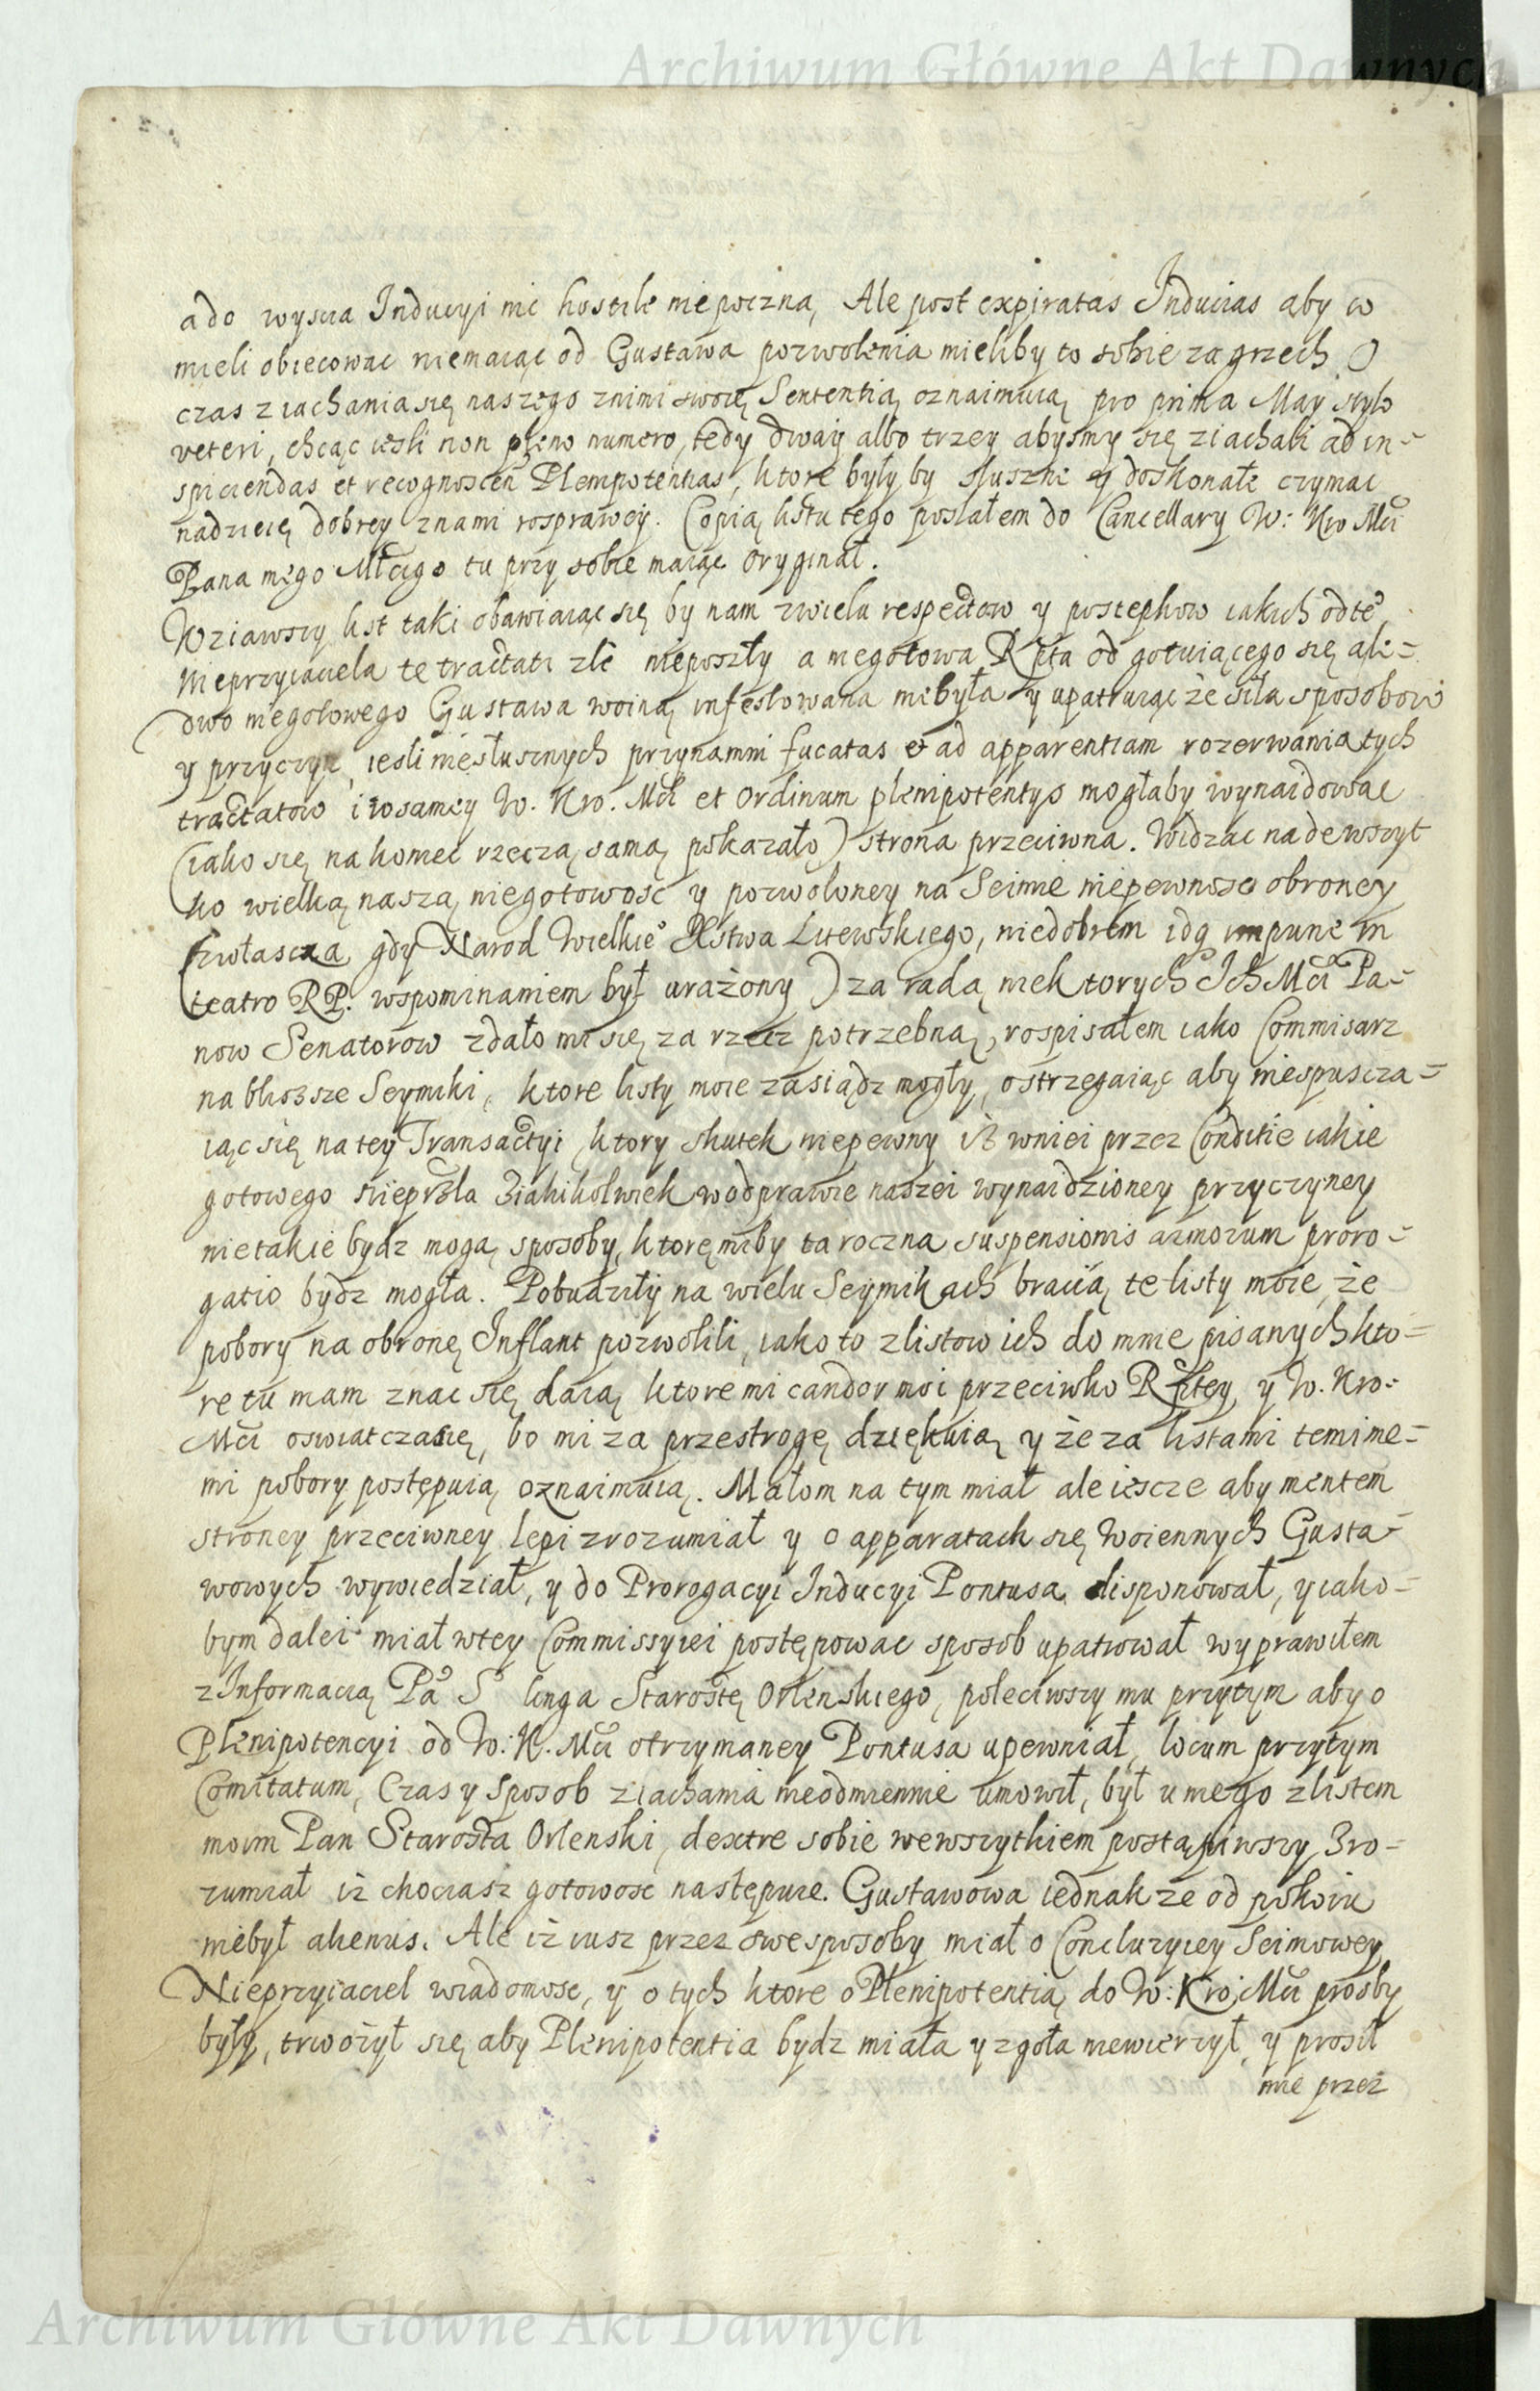 Archiwum Główne Akt Dawnych
ado wyscia Inducyi nic hostile niepoczną, Ale post expiratas Inducias aby co
mieli obiecowac niemaiąc od Gustawa pozwolenia mieliby to sobie za grzech. O
czas ziachania się naszego znimi swoię Sententią oznaimuią pro prima May stylo
veteri, chcąc iesli non pleno numero, tedy dwaij albo trzey abysmy się ziachali ad in-
spiciendas et recognoscen Plenipotentias, ktore byłyby słuszne y doskonałe czymac
nadzieię dobrey znami rosprawey. Copią listu tego posłałem do Cancellary W: Kro Mci
Pana mego Młcigo tu przy sobie maiąc oryginał.
Wziawszy list taki obawiaiąc się by nam zwielu respectow y postepkow iakich od te
Nieprzyiaciela te tractati zle nieposzły a niegotowa Rpta od gotuiącego się ale-
dwo niegotowego Gustawa woiną infestowana niebyła y upatruiąc że siła sposobow
y przyczyn, iesli niesłusznych przynamni fucatas et ad apparentiam rozerwania tych
tractatow i wsamey W. Kro. Mci et Ordinum plenipotentys mogłaby wynaidowac
(iako się nakoniec rzeczą samą pokazało) strona przeciwna. Widzac nadewszyt
ko wielką naszą niegotowosc y pozwoloney na Seimie niepewnosc obroney
(zwłascza gdy Narod Wielkie Xstwa Litewskiego, niedobrem idq impune in
teatro RP. wspominaniem był urażony) za radą niektorych Ich Mci Pa-
now Senatorow zdało mi się za rzecz potrzebną, rospisałem iako Commisarz
na bliższe Seymiki, ktore listy moie zasiądz mogły, ostrzegaiąc aby niespuscza-
iąc się na tey Transactyi ktory skutek niepewny iż wniei przez Conditie iakie
gotowego nieprzla ziakikolwiek wodprawie naszei wynaidzioney przyczyney
nietakie bydz mogą sposoby, ktoremiby taroczna suspensionis armorum proro-
gatio bydz mogła. Pobudziły na wielu Seymikach bracią te listy moie, że
pobory na obronę Inflant pozwolili, iako to zlistow ich do mnie pisanych kto-
re tu mam znac się daią ktore mi candor moi przeciwko Rptey y W. Kro.
Mci oswiatczasię, bo mi za przestrogę dziękuią y że za listami temi me-
mi pobory postępuią oznaimuią. Małom na tym miał ale iescze aby mentem
stroney przeciwney lepi zrozumiał y o apparatach się Woiennych Gusta-
wowych wywiedział, y do Prorogacyi Inducyi Pontusa disponował, y iako-
bym dalei miał wtey Commissyiei postępowac sposob upatrował wyprawiłem
z Informacią Pa S linga Starostę Orlenskiego, poleciwszy mu przytym aby o
Plenipotencyi od W: K. Mci otrzymaney Pontusa upewniał, locum przytym
Comitatum, Czas y Sposob ziachania nieodmiennie umowił, był u niego zlistem
moim Pan Starosta Orlenski, dextre sobie wewszytkiem postąpiwszy, Zro-
zumiał iż chociasz gotowosc następuie. Gustawowa iednakze od pokoiu
niebył alienus. Ale iż iusz przez swe sposoby miał o Concluzyiey Seimowey
Nieprzyiaciel wiadomosc, y o tych ktore o Plenipotentią do W: Kro: Mci prosby
były, trwożył się aby Plenipotentia bydz miała y zgoła niewierzył, y prosił
mie przez
Archiwum Główne Akt Dawnych